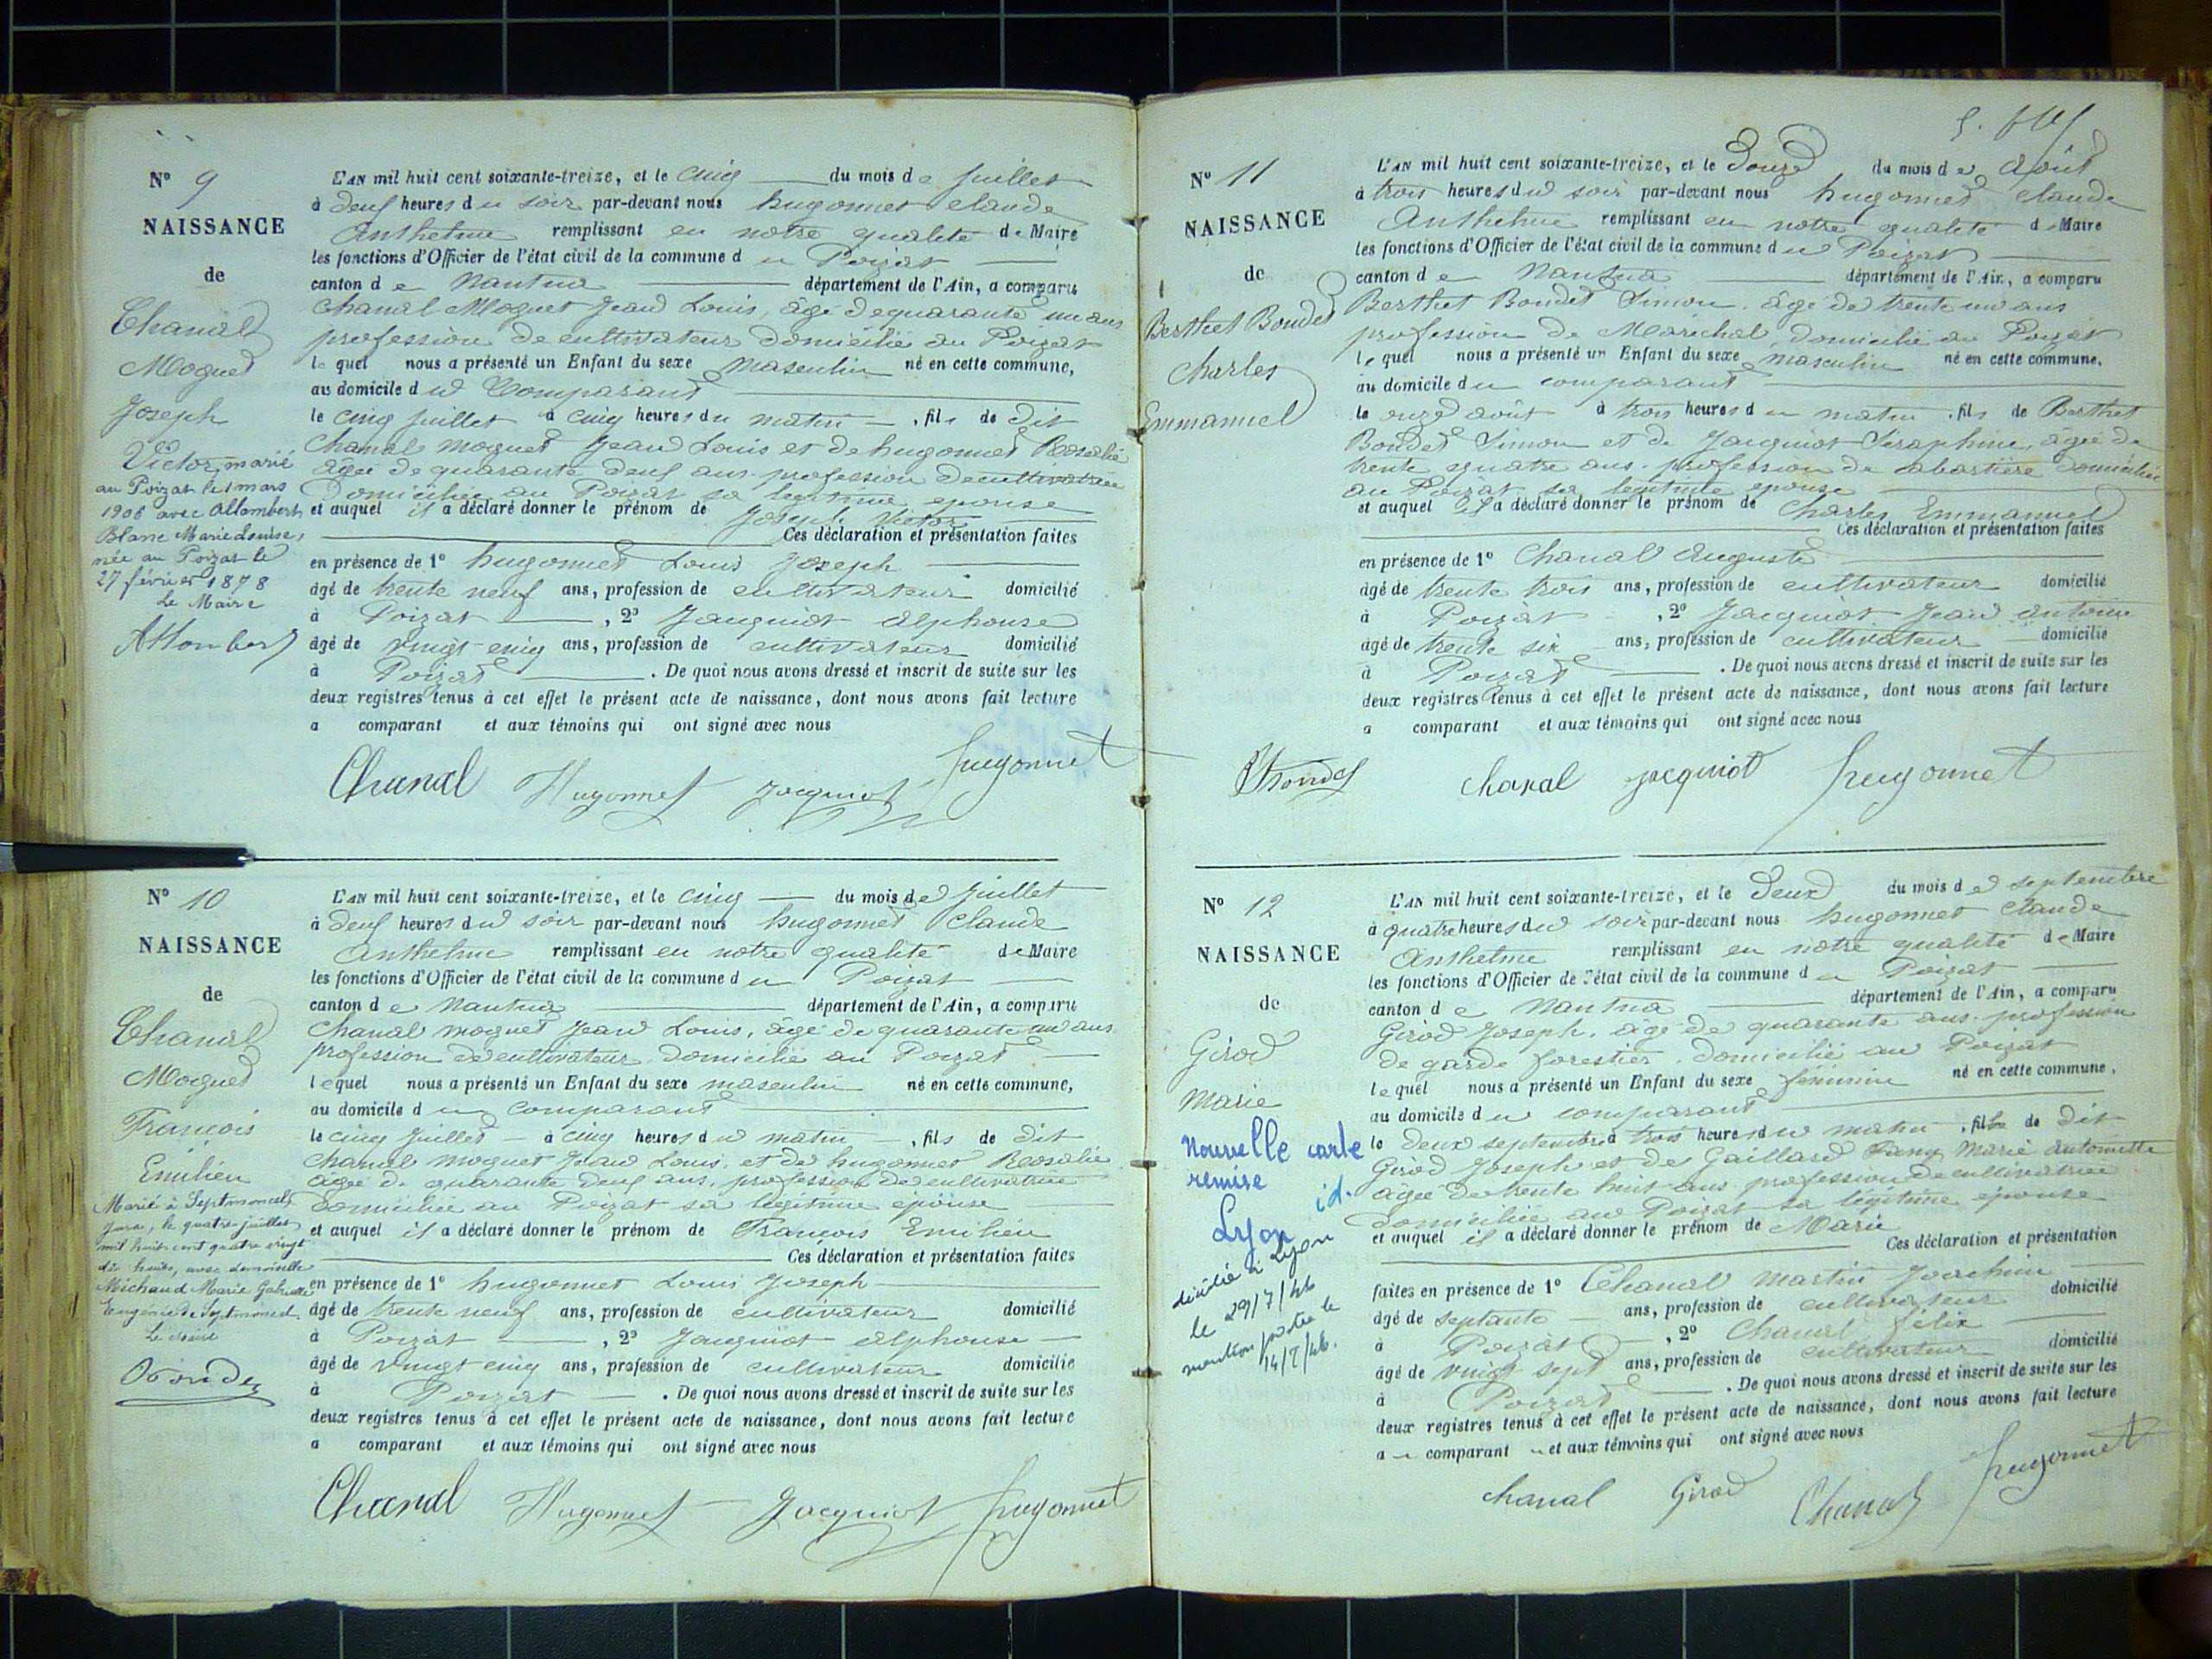 Nº 9
NAISSANCE
de
Chanal
Moquet
Joseph
Victor, marié
au Poizat le 1 mars
1906 avec Allombert
Blanc Marie Louise,
née au Poizat le
27 février 1878
Le Maire
Allombert
L'AN mil huit cent soixante-treize, et le cinq du mois de juillet
à deux heures du soir par-devant nous hugonnet Claude
Anthelme remplissant en notre qualité de Maire
les fonctions d'Officier de l'état civil de la commune du Poizat
canton de Nantua département de l'Ain, a comparu
Chanal Moquet Jean Louis, âgé de quarante un ans
profession de cultivateur domicilié au Poizat
lequel nous a présenté un Enfant du sexe masculin né en cette commune,
au domicile du Comparant
le cinq juillet à cinq heures du matin, fils de dit
Chanal Moquet Jean Louis et de hugonnet Rosalie
âgée de quarante deux ans. profession de cultivatrice
domiciliée au Poizat sa légitime épouse
et auquel il a déclaré donner le prénom de Joseph Victor
Ces déclaration et présentation faites
en présence de 1º hugonnet Louis Joseph
âgé de trente neuf ans, profession de cultivateur domicilié
à Poizat, 2º Jacquiot Alphonse
âgé de vingt cinq ans, profession de cultivateur domicilié
à Poizat. De quoi nous avons dressé et inscrit de suite sur les
deux registres tenus à cet effet le présent acte de naissance, dont nous avons fait lecture
a comparant et aux témoins qui ont signé avec nous
Chanal Hugonnet Jacquiot hugonnet
Nº 10
NAISSANCE
de
Chanal
Moquet
François
Emilien
Marié à Septmoncel
Jura, le quatre juillet
mil huit cent quatre vingt
dix huit, avec demoiselle
Michaud Marie Gabrielle
Eugénie de Septmoncel
Le Maire
L'AN mil huit cent soixante-treize, et le cinq du mois de Juillet
à deux heures du soir par-devant nous hugonnet Claude
Anthelme remplissant en notre qualité de Maire
les fonctions d'Officier de l'état civil de la commune du Poizat
canton de Nantua département de l'Ain, a comparu
Chanal moquet Jean Louis, âgé de quarante un ans
profession de cultivateur domicilié au Poizat
lequel nous a présenté un Enfant du sexe masculin né en cette commune,
au domicile du comparant
le cinq Juillet à cinq heures du matin, fils de dit
Chanal moquet Jean Louis, et de hugonnet Rosalie
âgée de quarante deux ans, profession de cultivatrice
domiciliée au Poizat sa légitime épouse
et auquel il a déclaré donner le prénom de François Emilien
Ces déclaration et présentation faites
en présence de 1º hugonnet Louis Joseph
âgé de trente neuf ans, profession de cultivateur domicilié
à Poizat, 2º Jacquiot Alphonse
âgé de vingt cinq ans, profession de cultivateur domicilié
à Poizat. De quoi nous avons dressé et inscrit de suite sur les
deux registres tenus à cet effet le présent acte de naissance, dont nous avons fait lecture
a comparant et aux témoins qui ont signé avec nous
Chanal Hugonnet Jacquiot hugonnet
Nº 11
NAISSANCE
de
Berthet Bondet
Charles
Emmanuel
L'AN mil huit cent soixante-treize, et le Douze du mois de Août
à trois heures du soir par-devant nous hugonnet Claude
Anthelme remplissant en notre qualité de Maire
les fonctions d'Officier de l'état civil de la commune du Poizat
canton de Nantua département de l'Ain, a comparu
Berthet Bondet Simon, âgé de trente un ans
profession de Maréchal, domicilié au Poizat
lequel nous a présenté un Enfant du sexe masculin né en cette commune,
au domicile du comparant
le onze août à trois heures du matin, fils de Berthet
Bondet Simon et de Jacquiot Séraphine, âgée de
trente quatre ans. profession de cabartière domiciliée
au Poizat sa légitime épouse
et auquel il a déclaré donner le prénom de Charles Emmanuel
Ces déclaration et présentation faites
en présence de 1º Chanal Auguste
âgé de trente trois ans, profession de cultivateur domicilié
à Poizat, 2º Jacquiot Jean Antoine
âgé de trente six ans, profession de cultivateur domicilié
à Poizat. De quoi nous avons dressé et inscrit de suite sur les
deux registres tenus à cet effet le présent acte de naissance, dont nous avons fait lecture
a comparant et aux témoins qui ont signé avec nous
chanal jacquiot hugonnet
Nº 12
NAISSANCE
de
Girod
Marie
Nouvelle carte
remise
id.
Lyon
décédé à Lyon
le 29/7/46
mention portée le
14/8/46.
L'AN mil huit cent soixante-treize, et le Deux du mois de septembre
à quatre heures du soir par-devant nous hugonnet Claude
Anthelme remplissant en notre qualité de Maire
les fonctions d'Officier de l'état civil de la commune du Poizat
canton de Nantua département de l'Ain, a comparu
Girod Joseph, âgé de quarante ans. profession
de garde forestier. domicilié au Poizat
lequel nous a présenté un Enfant du sexe féminin né en cette commune,
au domicile du comparant
le deux septembre à trois heures du matin, fille de dit
Girod Joseph et de Gaillard Fany Marie Antoinette
âgée de trente huit ans profession de cultivatrice
domiciliée au Poizat sa légitime épouse
et auquel il a déclaré donner le prénom de Marie
Ces déclaration et présentation
faites en présence de 1º Chanal Martin Joachim
âgé de septante ans, profession de cultivateur domicilié
à Poizat, 2º Chanal félix
âgé de vingt sept ans, profession de cultivateur domicilié
à Poizat. De quoi nous avons dressé et inscrit de suite sur les
deux registres tenus à cet effet le présent acte de naissance, dont nous avons fait lecture
au comparant et aux témoins qui ont signé avec nous
chanal Girod Chanal hugonnet